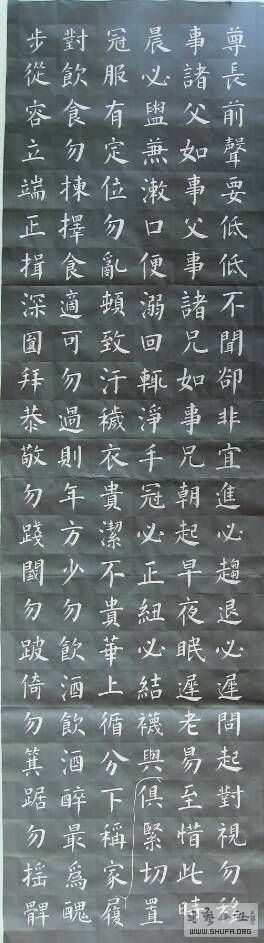 尊長前聲要低低不聞卻非宜進必趨退必遲問起對視勿移
事諸父如事父事諸兄如事兄朝起早夜眠遲老易至惜此時
晨必盥兼漱口便溺回輒淨手冠必正紐必結襪與俱緊切置
冠服有定位勿亂頓致汙穢衣貴潔不貴華上循分下稱家履
對飲食勿揀擇食適可勿過則年方少勿飲酒飲酒醉最為醜
步從容立端正揖深圓拜恭敬勿踐閾勿跛倚勿箕踞勿搖髀
WWW.SHUFA.ORG